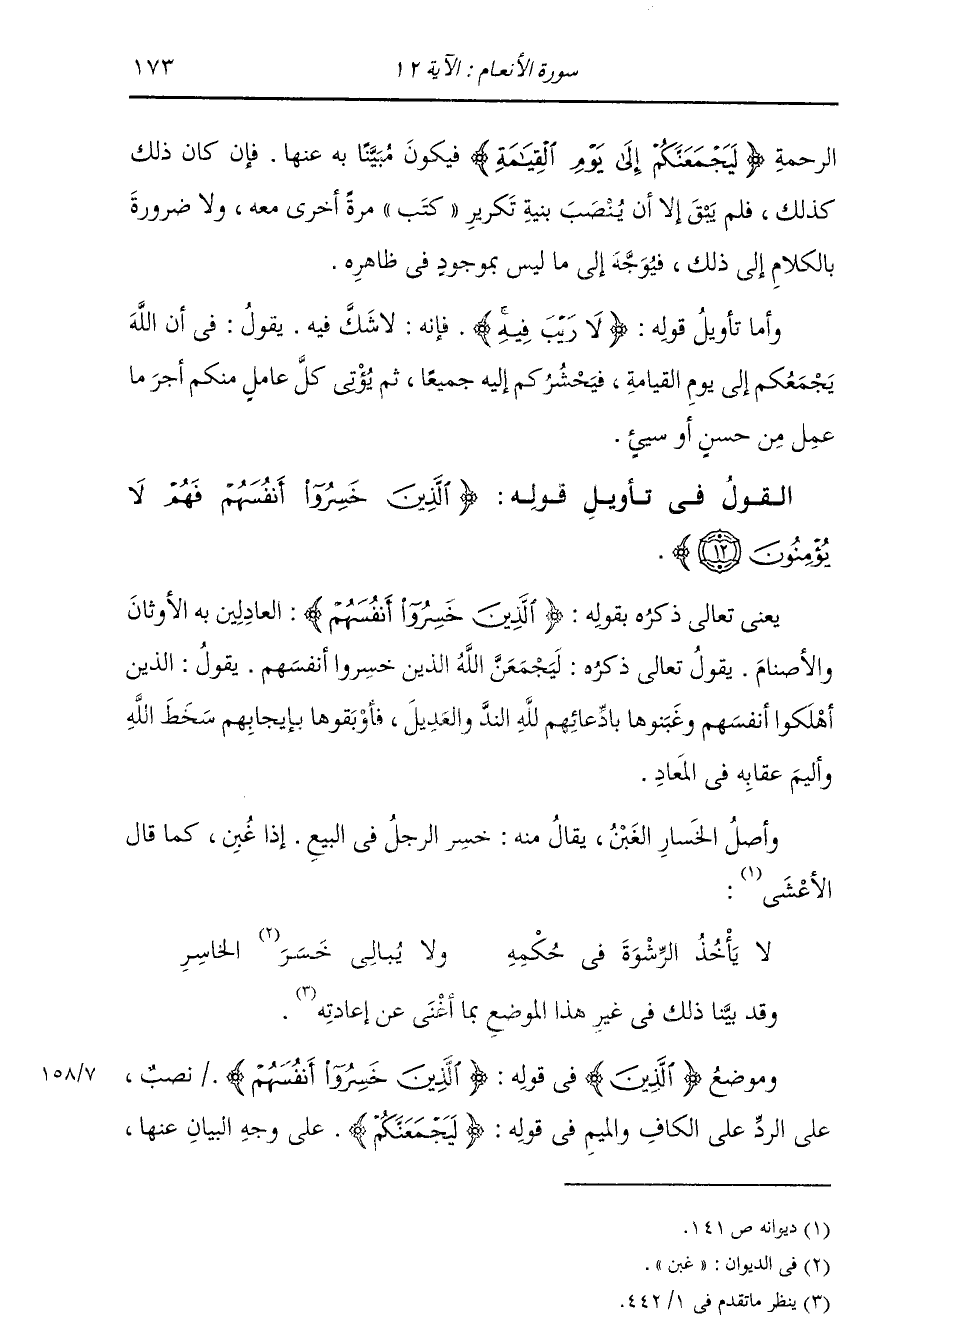 سورة الأنعام : الآية ١٢ ١٧٣
الرحمةِ ﴿ لَيَجْمَعَنَّكُمْ إِلَىٰ يَوْمِ ٱلْقِيَٰمَةِ ﴾ فيكونَ مُبَيَّنًا به عنها . فإن كان ذلك
كذلك ، فلم يَبْقَ إلا أن يُنْصَبَ بنيةِ تَكريرِ « كتَب » مرةً أخرى معه ، ولا ضرورةَ
بالكلامِ إلى ذلك ، فيُوَجَّهَ إلى ما ليس بموجودٍ فى ظاهرِه .
وأما تأويلُ قولِه : ﴿ لَا رَيْبَ فِيهِۚ ﴾ . فإنه : لاشَكَّ فيه . يقولُ : فى أن اللَّهَ
يَجْمَعُكم إلى يومِ القيامةِ ، فيَحْشُرُكم إليه جميعًا ، ثم يُؤْتِى كلَّ عاملٍ منكم أجرَ ما
عمِل مِن حسنٍ أو سيئٍ .
القولُ فى تأويلِ قولِه : ﴿ ٱلَّذِينَ خَسِرُوٓا۟ أَنفُسَهُمْ فَهُمْ لَا
يُؤْمِنُونَ ١٢ ﴾ .
يعنى تعالى ذكرُه بقولِه : ﴿ ٱلَّذِينَ خَسِرُوٓا۟ أَنفُسَهُمْ ﴾ : العادِلِين به الأوثانَ
والأصنامَ . يقولُ تعالى ذكرُه : لَيَجْمَعَنَّ اللَّهُ الذين خسِروا أنفسَهم . يقولُ : الذين
أهْلَكوا أنفسَهم وغَبَنوها بادِّعائِهم للَّهِ الندَّ والعَدِيلَ ، فأوْبَقوها بإيجابِهم سَخَطَ اللَّهِ
وأليمَ عقابِه فى المَعادِ .
وأصلُ الخَسارِ الغَبْنُ ، يقالُ منه : خسِر الرجلُ فى البيعِ . إذا غُبِن ، كما قال
الأعْشَى(١) :
لا يَأْخُذُ الرِّشْوَةَ فى حُكْمِهِ ولا يُبالِى خَسَرَ(٢) الخاسِرِ
وقد بيَّنا ذلك فى غيرِ هذا الموضعِ بما أغْنَى عن إعادتِه(٣) .
وموضعُ ﴿ ٱلَّذِينَ ﴾ فى قولِه : ﴿ ٱلَّذِينَ خَسِرُوٓا۟ أَنفُسَهُمْ ﴾ ./ نصبٌ ، ١٥٨/٧
على الردِّ على الكافِ والميمِ فى قولِه : ﴿ لَيَجْمَعَنَّكُمْ ﴾ . على وجهِ البيانِ عنها ،
(١) ديوانه ص ١٤١.
(٢) فى الديوان : « غبن » .
(٣) ينظر ماتقدم فى ١/ ٤٤٢.